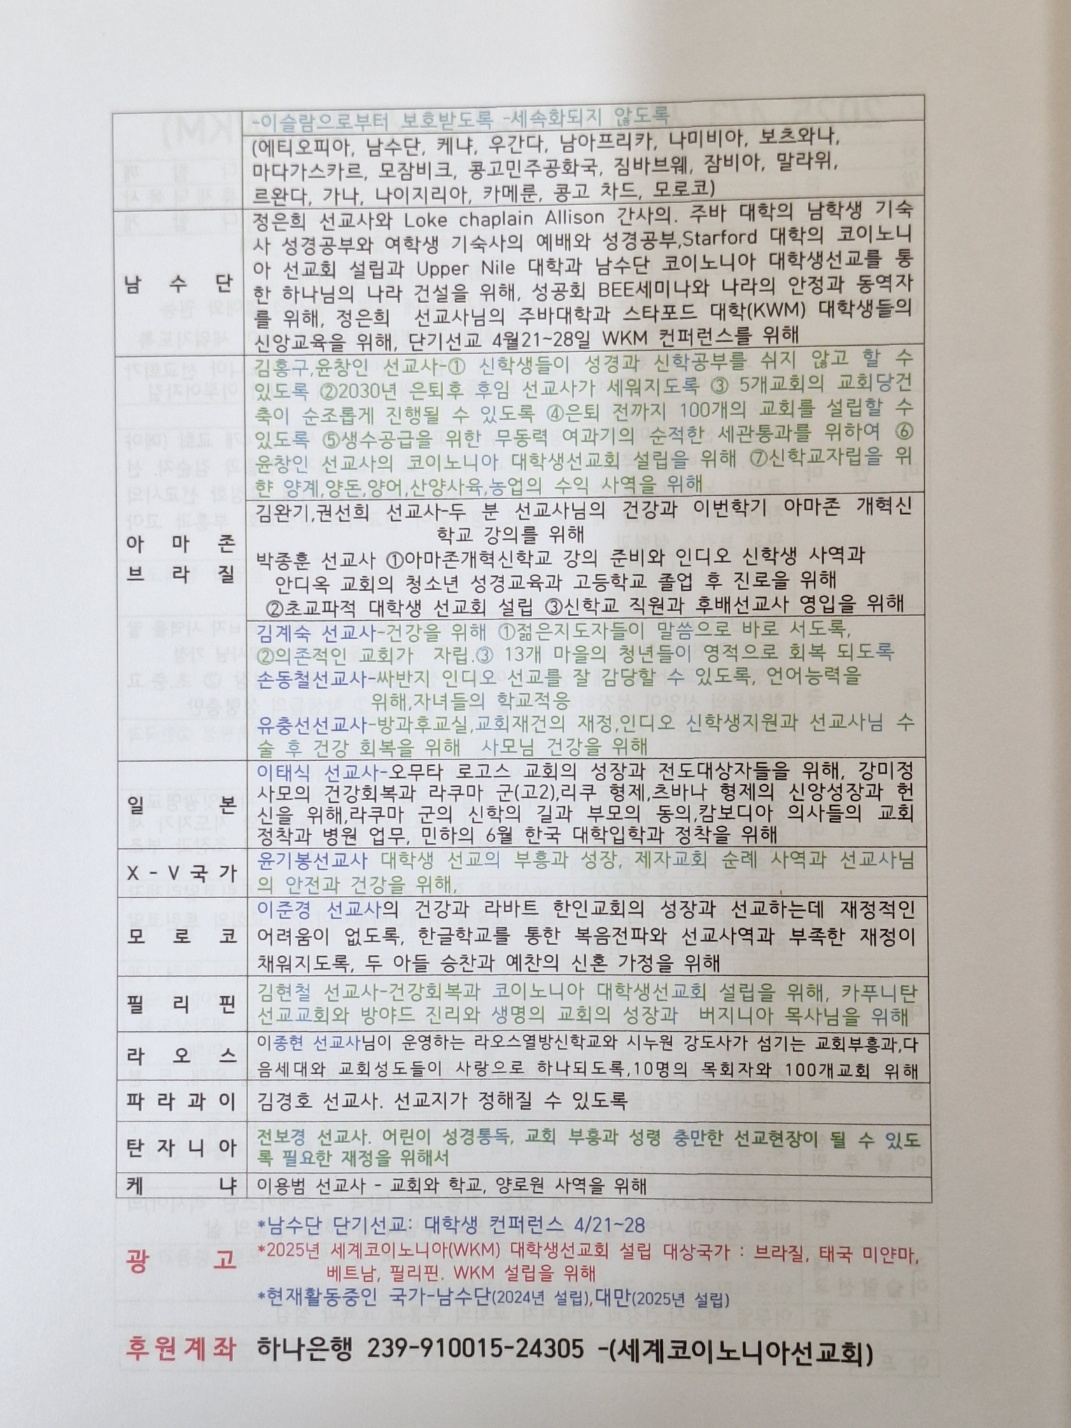 -이슬람으로부터 보호받도록 -세속화되지 않도록
(에티오피아, 남수단, 케냐, 우간다, 남아프리카, 나미비아, 보츠와나,
마다가스카르, 모잠비크, 콩고민주공화국, 짐바브웨, 잠비아, 말라위,
르완다, 가나, 나이지리아, 카메룬, 콩고 차드, 모로코)
남 수 단
정은희 선교사와 Loke chaplain Allison 간사의. 주바 대학의 남학생 기숙
사 성경공부와 여학생 기숙사의 예배와 성경공부,Starford 대학의 코이노니
아 선교회 설립과 Upper Nile 대학과 남수단 코이노니아 대학생선교를 통
한 하나님의 나라 건설을 위해, 성공회 BEE세미나와 나라의 안정과 동역자
를 위해, 정은희 선교사님의 주바대학과 스타포드 대학(KWM) 대학생들의
신앙교육을 위해, 단기선교 4월21~28일 WKM 컨퍼런스를 위해
아 마 존
브 라 질
김홍구,윤창인 선교사-① 신학생들이 성경과 신학공부를 쉬지 않고 할 수
있도록 ②2030년 은퇴후 후임 선교사가 세워지도록 ③ 5개교회의 교회당건
축이 순조롭게 진행될 수 있도록 ④은퇴 전까지 100개의 교회를 설립할 수
있도록 ⑤생수공급을 위한 무동력 여과기의 순적한 세관통과를 위하여 ⑥
윤창인 선교사의 코이노니아 대학생선교회 설립을 위해 ⑦신학교자립을 위
햔 양계,양돈,양어,산양사육,농업의 수익 사역을 위해
김완기,권선희 선교사-두 분 선교사님의 건강과 이번학기 아마존 개혁신
학교 강의를 위해
박종훈 선교사 ①아마존개혁신학교 강의 준비와 인디오 신학생 사역과
안디옥 교회의 청소년 성경교육과 고등학교 졸업 후 진로을 위해
②초교파적 대학생 선교회 설립 ③신학교 직원과 후배선교사 영입을 위해
김계숙 선교사-건강을 위해 ①젊은지도자들이 말씀으로 바로 서도록,
②의존적인 교회가 자립.③ 13개 마을의 청년들이 영적으로 회복 되도록
손동철선교사-싸반지 인디오 선교를 잘 감당할 수 있도록, 언어능력을
위해,자녀들의 학교적응
유충선선교사-방과후교실,교회재건의 재정,인디오 신학생지원과 선교사님 수
술 후 건강 회복을 위해 사모님 건강을 위해
일 본
이태식 선교사-오무타 로고스 교회의 성장과 전도대상자들을 위해, 강미정
사모의 건강회복과 라쿠마 군(고2),리쿠 형제,츠바나 형제의 신앙성장과 헌
신을 위해,라쿠마 군의 신학의 길과 부모의 동의,캄보디아 의사들의 교회
정착과 병원 업무, 민하의 6월 한국 대학입학과 정착을 위해
X - V 국 가
윤기봉선교사 대학생 선교의 부흥과 성장, 제자교회 순례 사역과 선교사님
의 안전과 건강을 위해,
모 로 코
이준경 선교사의 건강과 라바트 한인교회의 성장과 선교하는데 재정적인
어려움이 없도록, 한글학교를 통한 복음전파와 선교사역과 부족한 재정이
채워지도록, 두 아들 승찬과 예찬의 신혼 가정을 위해
필 리 핀
김현철 선교사-건강회복과 코이노니아 대학생선교회 설립을 위해, 카푸니탄
선교교회와 방야드 진리와 생명의 교회의 성장과 버지니아 목사님을 위해
라 오 스
이종현 선교사님이 운영하는 라오스열방신학교와 시누원 강도사가 섬기는 교회부흥과,다
음세대와 교회성도들이 사랑으로 하나되도록,10명의 목회자와 100개교회 위해
파 라 과 이
김경호 선교사. 선교지가 정해질 수 있도록
탄 자 니 아
전보경 선교사. 어린이 성경통독, 교회 부흥과 성령 충만한 선교현장이 될 수 있도
록 필요한 재정을 위해서
케 냐
이용범 선교사 - 교회와 학교, 양로원 사역을 위해
광 고
*남수단 단기선교: 대학생 컨퍼런스 4/21~28
*2025년 세계코이노니아(WKM) 대학생선교회 설립 대상국가 : 브라질, 태국 미얀마,
베트남, 필리핀. WKM 설립을 위해
*현재활동중인 국가-남수단(2024년 설립),대만(2025년 설립)
후원계좌 하나은행 239-910015-24305 -(세계코이노니아선교회)